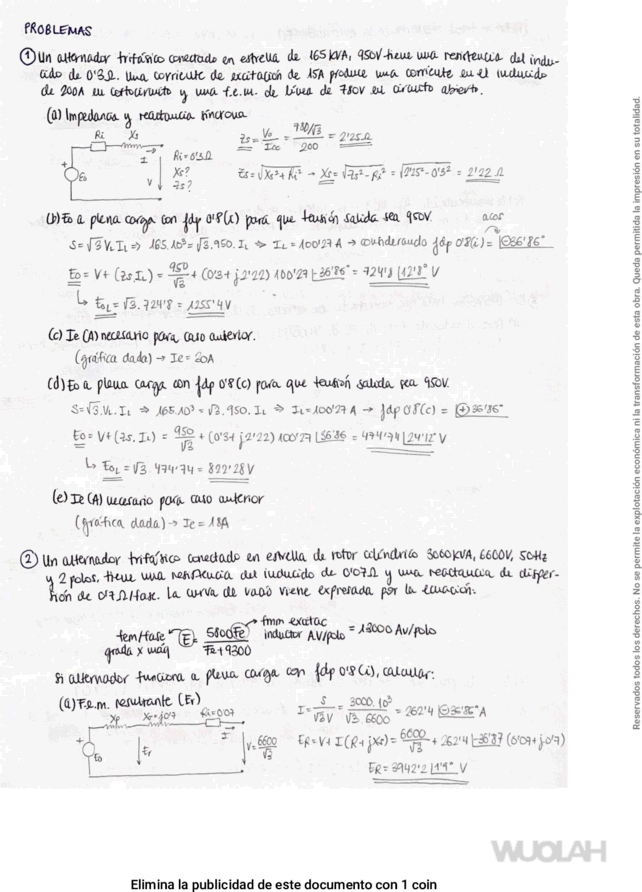 PROBLEMAS
① Un alternador trifásico conectado en estrella de 165 KVA, 950V tiene una resistencia del indu-
cido de 0'3Ω. Una corriente de excitación de 15A produce una corriente en el inducido
de 200A en cortocircuito y una f.e.m. de línea de 780V en circuito abierto.
(a) Impedancia y reactancia síncrona
Ri Xs
I
V
+
Eo
Ri=0'3Ω
Xs?
Zs?
Zs = Vo/Icc = 780/√3 / 200 = 2'25Ω
Zs=√Xs²+Ri² → Xs=√Zs²-Ri² = √2'25²-0'3² = 2'22 Ω
(b) Eo a plena carga con fdp 0'8(i) para que tensión salida sea 950V.
acos
S=√3 VL IL ⇒ 165.10³=√3.950.IL ⇒ IL=100'27 A → considerando fdp 0'8(i) = |⊖36'86°
Eo = V+(Zs.IL) = 950/√3 + (0'3+j2'22) 100'27 |-36'86° = 724'8 |12'8° V
↳ EoL = √3.724'8 = 1255'4V
(c) Ie (A) necesario para caso anterior.
(gráfica dada) → Ie = 30A
(d) Eo a plena carga con fdp 0'8(c) para que tensión salida sea 950V.
S=√3.VL.IL ⇒ 165.10³=√3.950.IL ⇒ IL=100'27 A → fdp 0'8(c) = |⊕36'86°
Eo = V+(Zs.IL) = 950/√3 + (0'3+j2'22) 100'27 |36'86 = 474'74 |24'12° V
↳ EoL = √3. 474'74 = 822'28V
(e) Ie (A) necesario para caso anterior
(gráfica dada) → Ie = 18A
② Un alternador trifásico conectado en estrella de rotor cilíndrico 3000KVA, 6600V, 50Hz
y 2 polos, tiene una resistencia del inducido de 0'07Ω y una reactancia de disper-
sión de 0'7 Ω/fase. La curva de vacío viene expresada por la ecuación:
fem/fase
grada x máq
E = 5800Fe / Fe+9300
fmm excitac
inductor AV/polo = 13000 Av/polo
Si alternador funciona a plena carga con fdp 0'8(i), calcular:
(a) F.e.m. resultante (Er)
Xp Xσ=j0'7 Ri=0'07
I
+
Eo
Er
V=6600/√3
I = S/√3V = 3000.10³/√3.6600 = 262'4 |⊖36'86° A
ER=V+I(R+jXs)=6600/√3 + 262'4 |-36'87 (0'07+j0'7)
ER=3942'2 |1'9° V
Reservados todos los derechos. No se permite la explotación económica ni la transformación de esta obra. Queda permitida la impresión en su totalidad.
WUOLAH
Elimina la publicidad de este documento con 1 coin